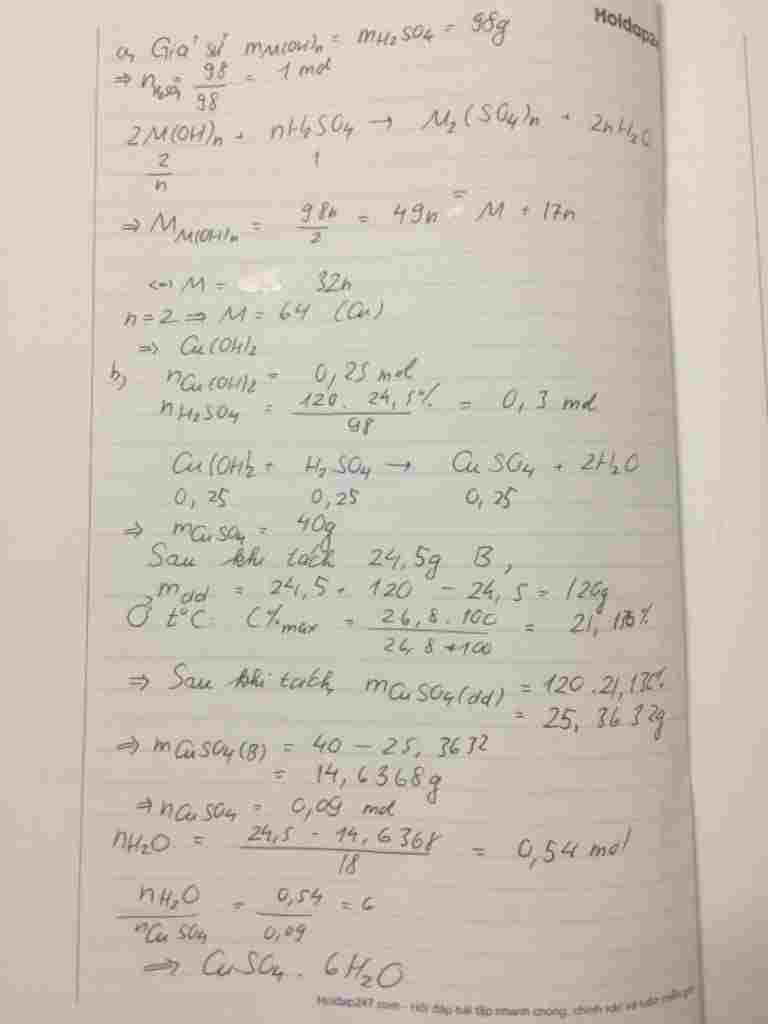 Hoidap2
a, Giả sử mM(OH)n = mH2SO4 = 98g
⇒ nH2SO4 = 98/98 = 1 mol
2M(OH)n + nH2SO4 → M2(SO4)n + 2nH2O
2/n 1
⇒ MM(OH)n = 98n/2 = 49n = M + 17n
<=> M = 32n
n = 2 ⇒ M = 64 (Cu)
⇒ Cu(OH)2
b, nCu(OH)2 = 0,25 mol
nH2SO4 = 120. 24,5%/98 = 0,3 mol
Cu(OH)2 + H2SO4 → CuSO4 + 2H2O
0,25 0,25 0,25
⇒ mCuSO4 = 40g
Sau khi tách 24,5g B,
mdd = 24,5 + 120 - 24,5 = 120g
Ở t°C: C%max = 26,8.100/26,8+100 = 21,136%
⇒ Sau khi tách, mCuSO4(dd) = 120.21,136%
= 25,3632g
⇒ mCuSO4(B) = 40 - 25,3632
= 14,6368g
⇒ nCuSO4 = 0,09 mol
nH2O = 24,5 - 14,6368/18 = 0,54 mol
nH2O/nCuSO4 = 0,54/0,09 = 6
⇒ CuSO4. 6H2O
Hoidap247.com - Hỏi đáp bài tập nhanh chóng, chính xác và luôn miễn ph